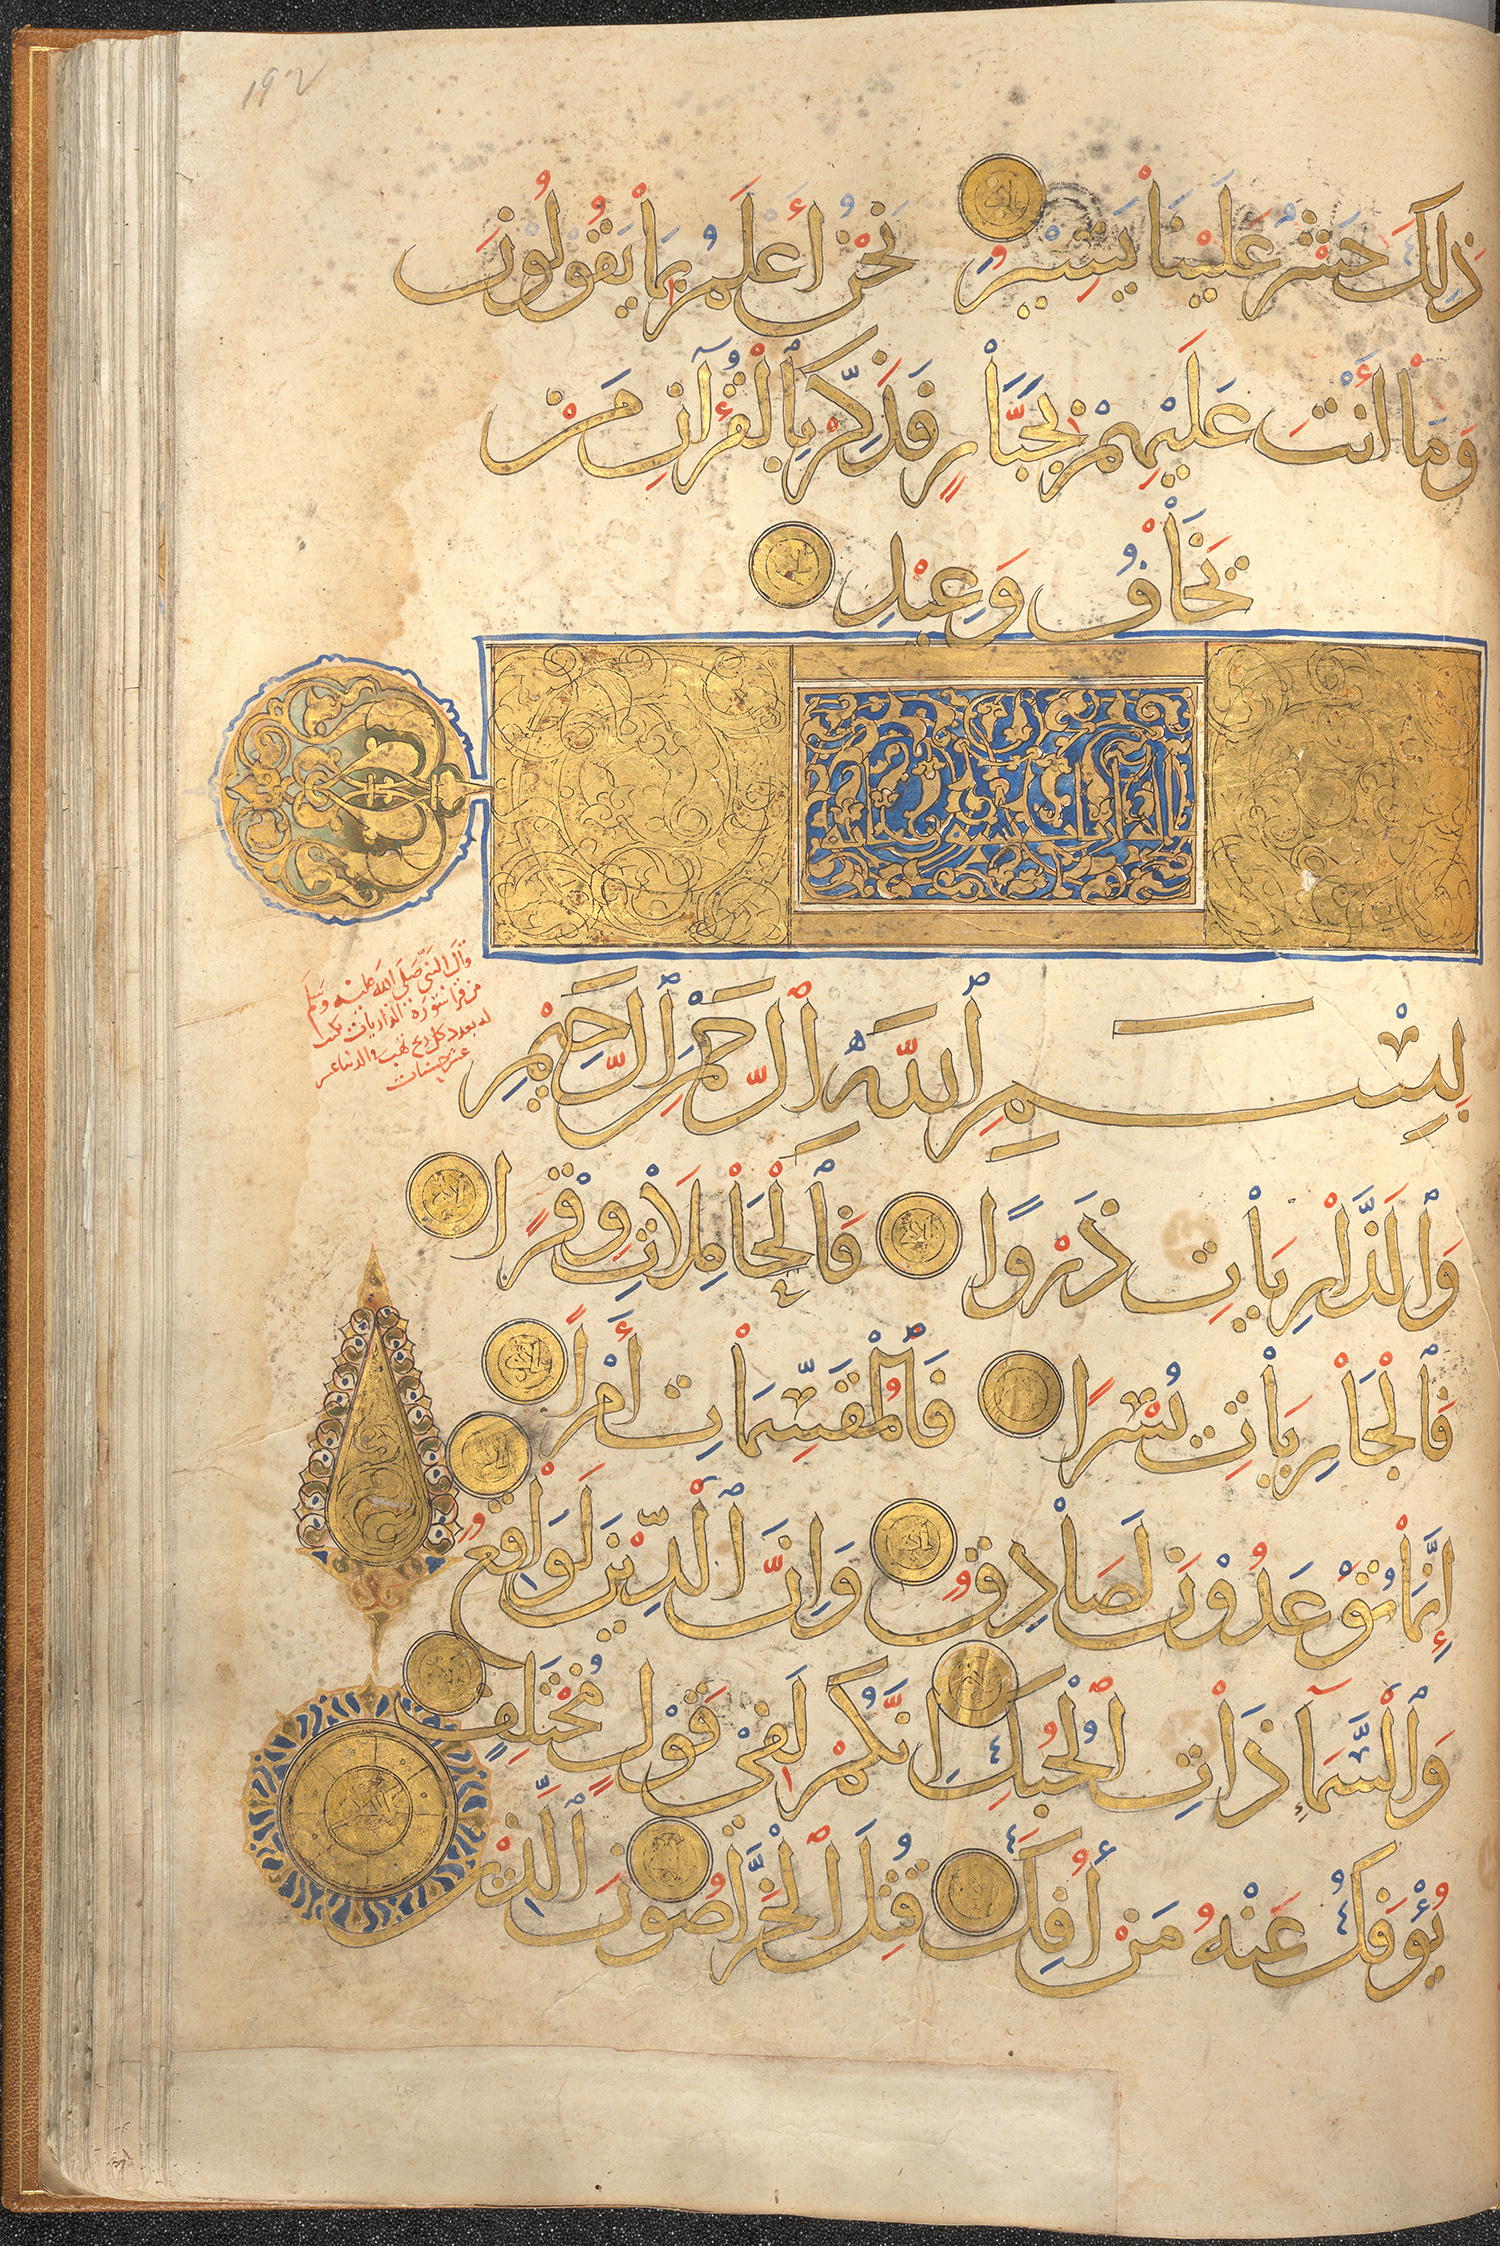 ١٩٢
ذَٰلِكَ حَشْرٌ عَلَيْنَا يَسِيرٌ نَحْنُ أَعْلَمُ بِمَا يَقُولُونَ
وَمَا أَنْتَ عَلَيْهِمْ بِجَبَّارٍ فَذَكِّرْ بِالْقُرْآنِ مَنْ
يَخَافُ وَعِيدِ
بِسْمِ اللَّهِ الرَّحْمَٰنِ الرَّحِيمِ
قال النبي صلى الله عليه وسلم
من قرأ سورة الذاريات يكتب
له بعدد كل ريح تهب في الدنيا عشر
عشر حسنات
وَالذَّارِيَاتِ ذَرْوًا فَالْحَامِلَاتِ وِقْرًا
فَالْجَارِيَاتِ يُسْرًا فَالْمُقَسِّمَاتِ أَمْرًا
إِنَّمَا تُوعَدُونَ لَصَادِقٌ وَإِنَّ الدِّينَ لَوَاقِعٌ
وَالسَّمَاءِ ذَاتِ الْحُبُكِ إِنَّكُمْ لَفِي قَوْلٍ مُخْتَلِفٍ
يُؤْفَكُ عَنْهُ مَنْ أُفِكَ قُتِلَ الْخَرَّاصُونَ الَّذِينَ